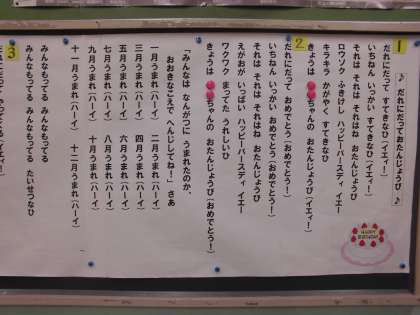 1
♪ だれにだっておたんじょうび ♪
だれにだって すてきなひ(イェイ!)
いちねん いっかい すてきなひ(イェイ!)
それは それは それはね おたんじょうび
ロウソク ふきけし ハッピーバースディ イエー
キラキラ かがやく すてきなひ
きょうは ちゃんの おたんじょうび(イェイ!)
2
だれにだって おめでとう(おめでとう!)
いちねん いっかい おめでとう(おめでとう!)
それは それは それはね おたんじょうび
えがおが いっぱい ハッピーバースディ イエー
ワクワク まってた うれしいひ
きょうは ちゃんの おたんじょうび(おめでとう!)
「みんなは なんがつに うまれたのか、
おおきなこえで へんじしてね!」 さあ
一月うまれ(ハーイ) 二月うまれ(ハーイ)
三月うまれ(ハーイ) 四月うまれ(ハーイ)
五月うまれ(ハーイ) 六月うまれ(ハーイ)
七月うまれ(ハーイ) 八月うまれ(ハーイ)
九月うまれ(ハーイ) 十月うまれ(ハーイ)
十一月うまれ(ハーイ) 十二月うまれ(ハーイ)
みんなもってる みんなもってる
みんなもってる たいせつなひ
3
HAPPY BIRTHDAY